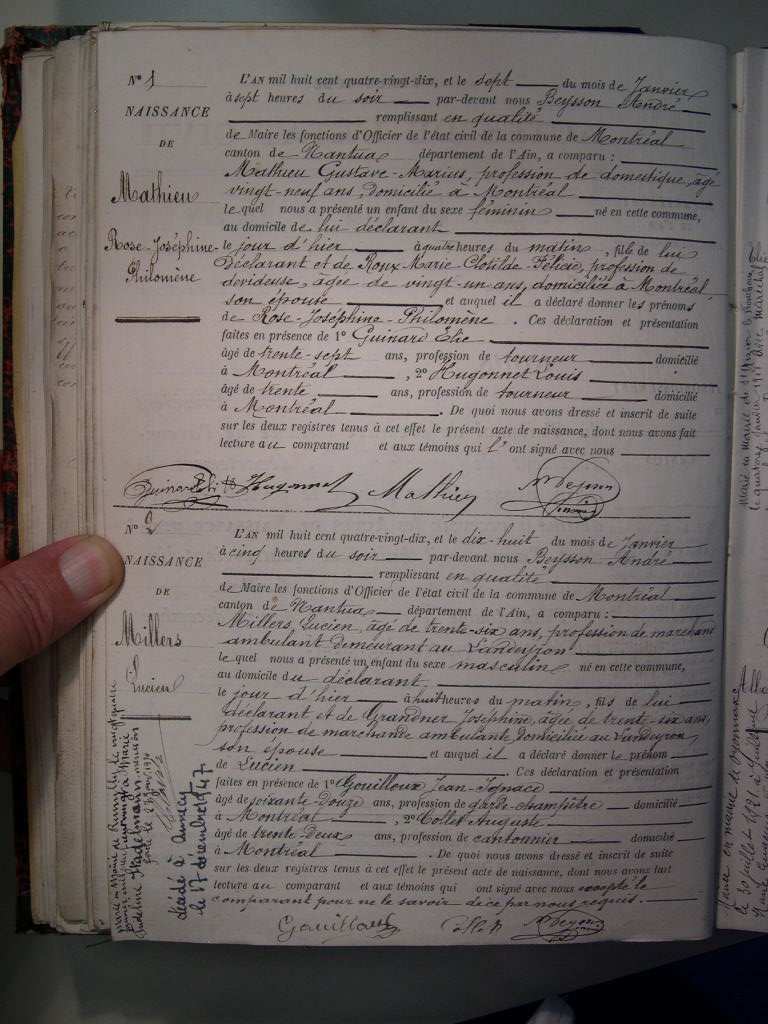 N° 1
NAISSANCE
DE
Mathieu
Rose-Joséphine-
Philomène
L'AN mil huit cent quatre-vingt-dix, et le sept du mois de Janvier
à sept heures du soir par-devant nous Beysson André
remplissant en qualité
de Maire les fonctions d'Officier de l'état civil de la commune de Montréal
canton de Nantua département de l'Ain, a comparu :
Mathieu Gustave-Marius, profession de domestique, agé
vingt-neuf ans, domicilié à Montréal
le quel nous a présenté un enfant du sexe féminin né en cette commune,
au domicile de lui déclarant
le jour d'hier à quatre heures du matin, fille de lui
Déclarant et de Roux Marie-Clotilde-Félicie, profession de
devideuse, agée de vingt-un ans, domiciliée à Montréal,
son épouse et auquel il a déclaré donner les prénoms
de Rose-Joséphine-Philomène . Ces déclaration et présentation
faites en présence de 1° Guinard Élie
âgé de trente-sept ans, profession de tourneur domicilié
à Montréal , 2° Hugonnet Louis
âgé de trente ans, profession de tourneur domicilié
à Montréal . De quoi nous avons dressé et inscrit de suite
sur les deux registres tenus à cet effet le présent acte de naissance, dont nous avons fait
lecture au comparant et aux témoins qui l'ont signé avec nous
Guinard Elie Hugonnet Mathieu
N° 2
NAISSANCE
DE
Millers
Lucien
L'AN mil huit cent quatre-vingt-dix, et le dix-huit du mois de Janvier
à cinq heures du soir par-devant nous Beysson André
remplissant en qualité
de Maire les fonctions d'Officier de l'état civil de la commune de Montréal
canton de Nantua département de l'Ain, a comparu :
Millers, Lucien, agé de trente-six ans, profession de marchand
ambulant demeurant au Landeyron
le quel nous a présenté un enfant du sexe masculin né en cette commune,
au domicile du déclarant
le jour d'hier à huit heures du matin, fils de lui
déclarant et de Grandner Joséphine, agée de trent-six ans
profession de marchande ambulante, domiciliée au Landeyron
son épouse et auquel il a déclaré donner le prénom
de Lucien . Ces déclaration et présentation
faites en présence de 1° Gouilloux Jean-Ignace
âgé de soixante-Douze ans, profession de garde-champêtre domicilié
à Montréal , 2° Collet Auguste
âgé de trente-Deux ans, profession de cantonnier domicilié
à Montréal . De quoi nous avons dressé et inscrit de suite
sur les deux registres tenus à cet effet le présent acte de naissance, dont nous avons fait
lecture au comparant et aux témoins qui ont signé avec nous excepté le
comparant pour ne le savoir de ce par nous requis.
Gouilloux
Marié à Mairie de Rumilly le vingt quatre
décédé à Annecy
le 17 décembre 1947